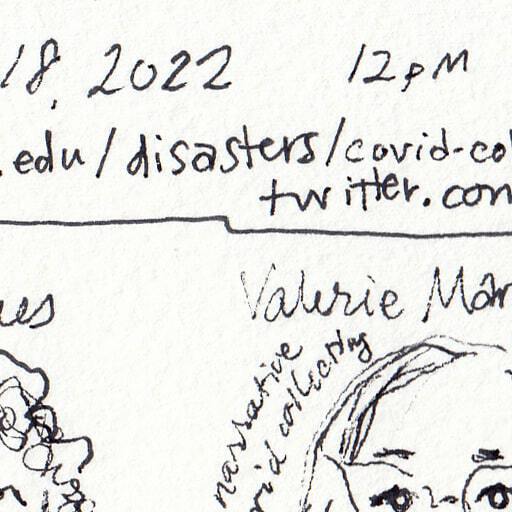 18, 2022 12pm
.edu/disasters/covid-co
twitter.com
ues Valerie Mar
narrative
collecting